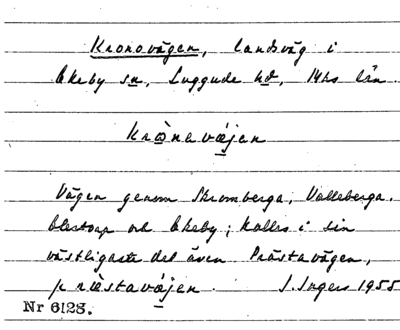 Kronovägen, landsväg i
Ekeby sn, Luggude hd, Mhs län.
Krònavæjen
Vägen genom Skromberga, Valleberga,
och Ekeby; kallas i sin
västligaste del även Prästavägen,
præstavæjen. I. Ingers 1955
Nr 6128.